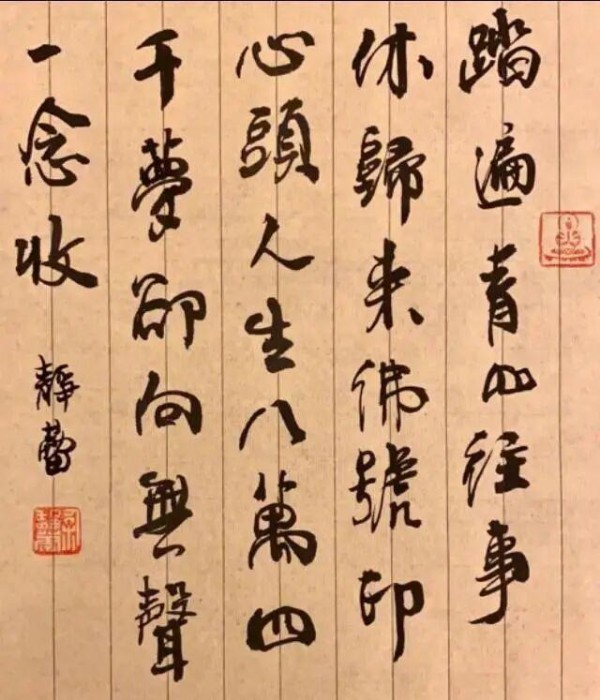 踏遍青山往事
休歸來佛號印
心頭人生八萬四
千夢卻向無聲
一念收
靜蕾